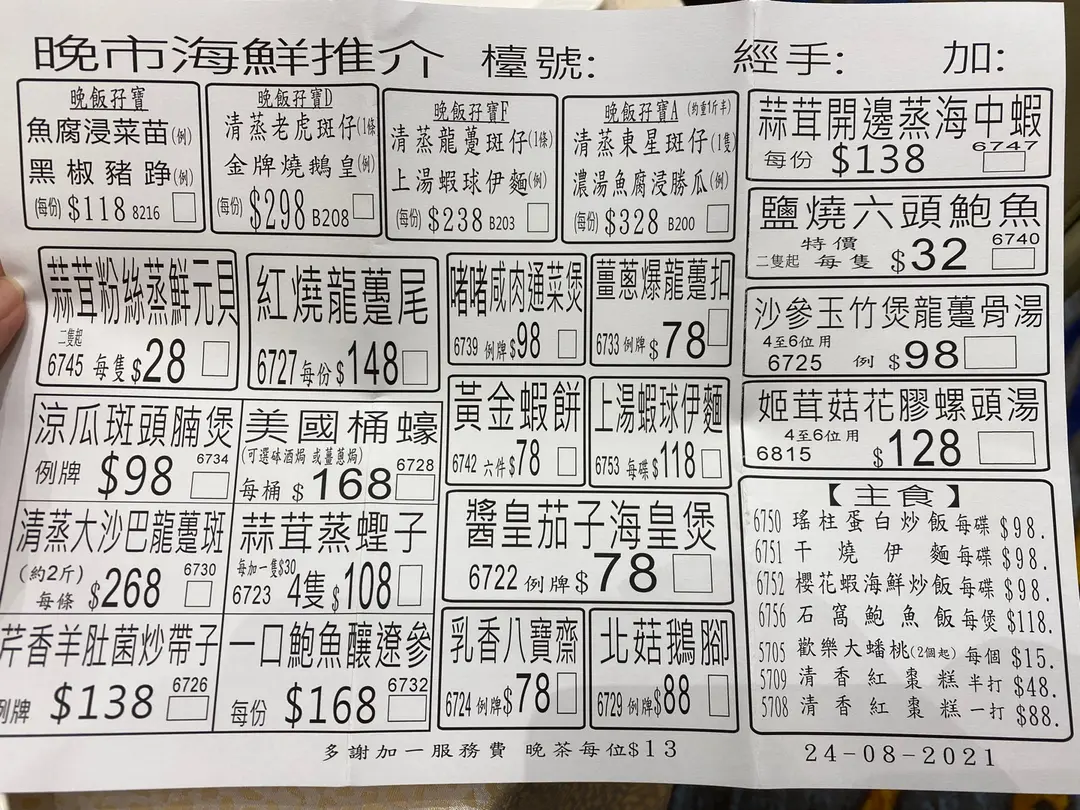 晚市海鮮推介 檯號: 經手: 加:
晚飯孖寶
魚腐浸菜苗(例)
黑椒豬踭(例)
(每份) $118 8216
晚飯孖寶D
清蒸老虎斑仔(1條)
金牌燒鵝皇(例)
(每份) $298 B208
晚飯孖寶F
清蒸龍躉斑仔(1條)
上湯蝦球伊麵(例)
(每份) $238 B203
晚飯孖寶A (約重1斤半)
清蒸東星斑仔(1隻)
濃湯魚腐浸勝瓜(例)
(每份) $328 B200
蒜茸開邊蒸海中蝦
每份 $138 6747
鹽燒六頭鮑魚
特價 6740
二隻起 每隻 $32
沙參玉竹煲龍躉骨湯
4至6位用
6725 例 $98
姬茸菇花膠螺頭湯
4至6位用
6815 $128
蒜茸粉絲蒸鮮元貝
二隻起
6745 每隻 $28
紅燒龍躉尾
6727 每份 $148
啫啫咸肉通菜煲
6739 例牌 $98
薑蔥爆龍躉扣
6733 例牌 $78
涼瓜斑頭腩煲
例牌 $98 6734
美國桶蠔
(可選砵酒焗 或薑蔥焗)
每桶 $168 6728
黃金蝦餅
6742 六件 $78
上湯蝦球伊麵
6753 每碟 $118
清蒸大沙巴龍躉斑
(約2斤) 6730
每條 $268
蒜茸蒸蟶子
每加一隻$30
6723 4隻 $108
醬皇茄子海皇煲
6722 例牌 $78
芹香羊肚菌炒帶子
例牌 $138 6726
一口鮑魚釀遼參
每份 $168 6732
乳香八寶齋
6724 例牌 $78
北菇鵝腳
6729 例牌 $88
【主食】
6750 瑤柱蛋白炒飯 每碟 $98.
6751 干燒伊麵 每碟 $98.
6752 櫻花蝦海鮮炒飯 每碟 $98.
6756 石窩鮑魚飯 每煲 $118.
5705 歡樂大蟠桃(2個起) 每個 $15.
5709 清香紅棗糕 半打 $48.
5708 清香紅棗糕 一打 $88.
多謝加一服務費 晚茶每位$13 24-08-2021